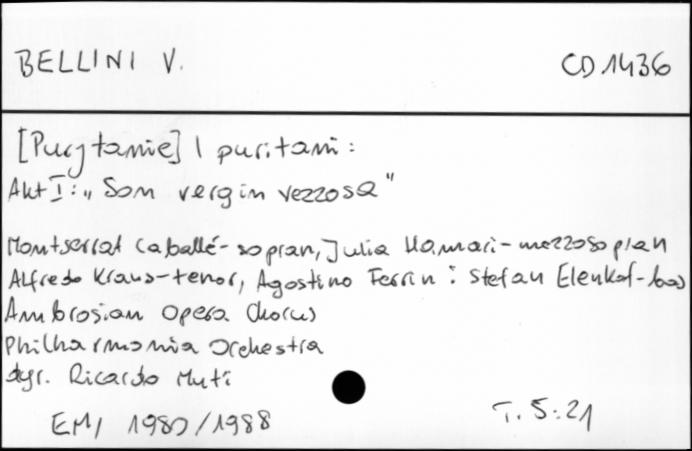 BELLINI V.
CD 1436
[Purytanie] I puritani:
Akt I: „Son vergin vezzosa"
Montserrat Caballé - sopran, Julia Hamari - mezzosopran
Alfredo Kraus - tenor, Agostino Ferrin i Stefan Elenkof - bas
Ambrosian Opera Chorus
Philharmonia Orchestra
dyr. Ricardo Muti
EMI 1980/1988
T. 5:21